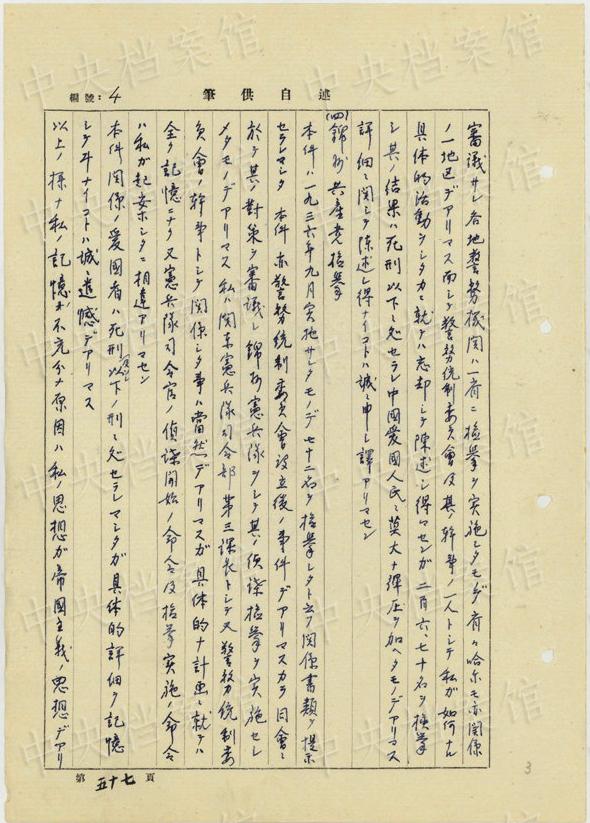 編號: 4
述自供筆
審議サレ各地警務機関ハ一斉ニ検挙ヲ実施シタモノデ斉々哈尓モ亦関係
ノ一地区デアリマス而シテ警務統制委員会及其ノ幹事ノ一人トシテ私ガ如何ナル
具体的活動ヲシタカニ就テハ忘却シテ陳述シ得マセンガ二百六、七十名ヲ検挙
シ其ノ結果ハ死刑以下ニ処セラレ中國愛國人民ニ莫大ナ弾圧ヲ加ヘタモノデアリマス
詳細ニ関シテ陳述シ得ナイコトハ誠ニ申シ譯アリマセン
(四)錦州共産党検挙
本件ハ一九三六年九月実施サレタモノデ七十二名ヲ検挙シタト云フ関係書類ヲ提示
セラレマシタ 本件亦警務統制委員會設立後ノ事件デアリマスカラ同會ニ
於テ其ノ対策ヲ審議シ錦州憲兵隊ヲシテ其ノ偵諜検挙ヲ実施セシ
メタモノデアリマス 私ハ関東憲兵隊司令部第三課長トシテ又警務統制委
員會ノ幹事トシテ関係シタ事ハ當然デアリマスガ具体的ナ計画ニ就テハ
全ク記憶ニナク又憲兵隊司令官ノ偵諜開始ノ命令及検挙実施ノ命令
ハ私ガ起案シタニ相違アリマセン
本件関係ノ愛國者ハ死刑以下ノ刑ニ処セラレマシタガ具体的詳細ヲ記憶
シテヰナイコトハ誠ニ遺憾デアリマス
以上ノ様ナ私ノ記憶ガ不充分ナ原因ハ私ノ思想ガ帝國主義ノ思想デアリ
第五十七頁
3
中央档案馆